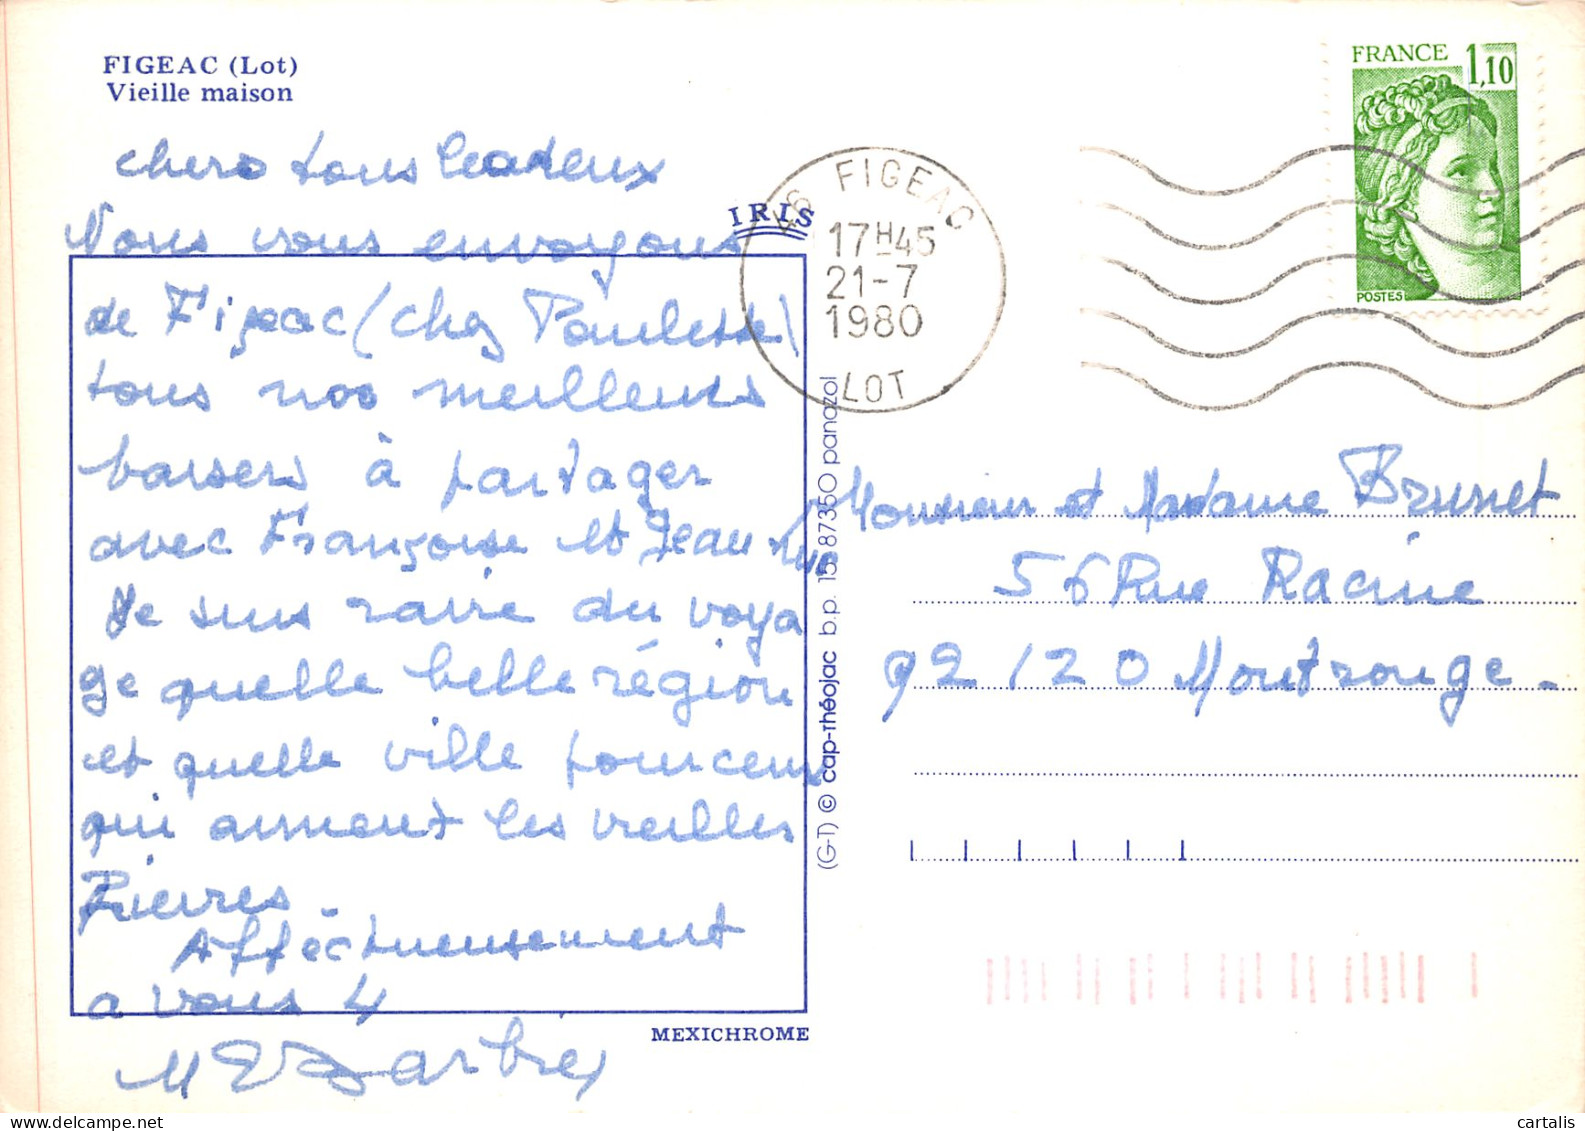 FIGEAC (Lot)
Vieille maison
chers tous les deux
Nous vous envoyons
de Figeac (chez Paulette)
tous nos meilleurs
baisers à partager
avec Françoise et Jean Luc
Je suis ravie du voya
ge quelle belle région
et quelle ville pour ceux
qui aiment les vieilles
Pierres.
Affectueusement
a vous 4
M Barbier
IRIS
MEXICHROME
(G-T) © cap-théojac b.p. 15 87350 panazol
46 FIGEAC
17H45
21-7
1980
LOT
FRANCE 1,10
POSTES
Monsieur et Madame Brunet
56 Rue Racine
92120 Montrouge.
cartalis